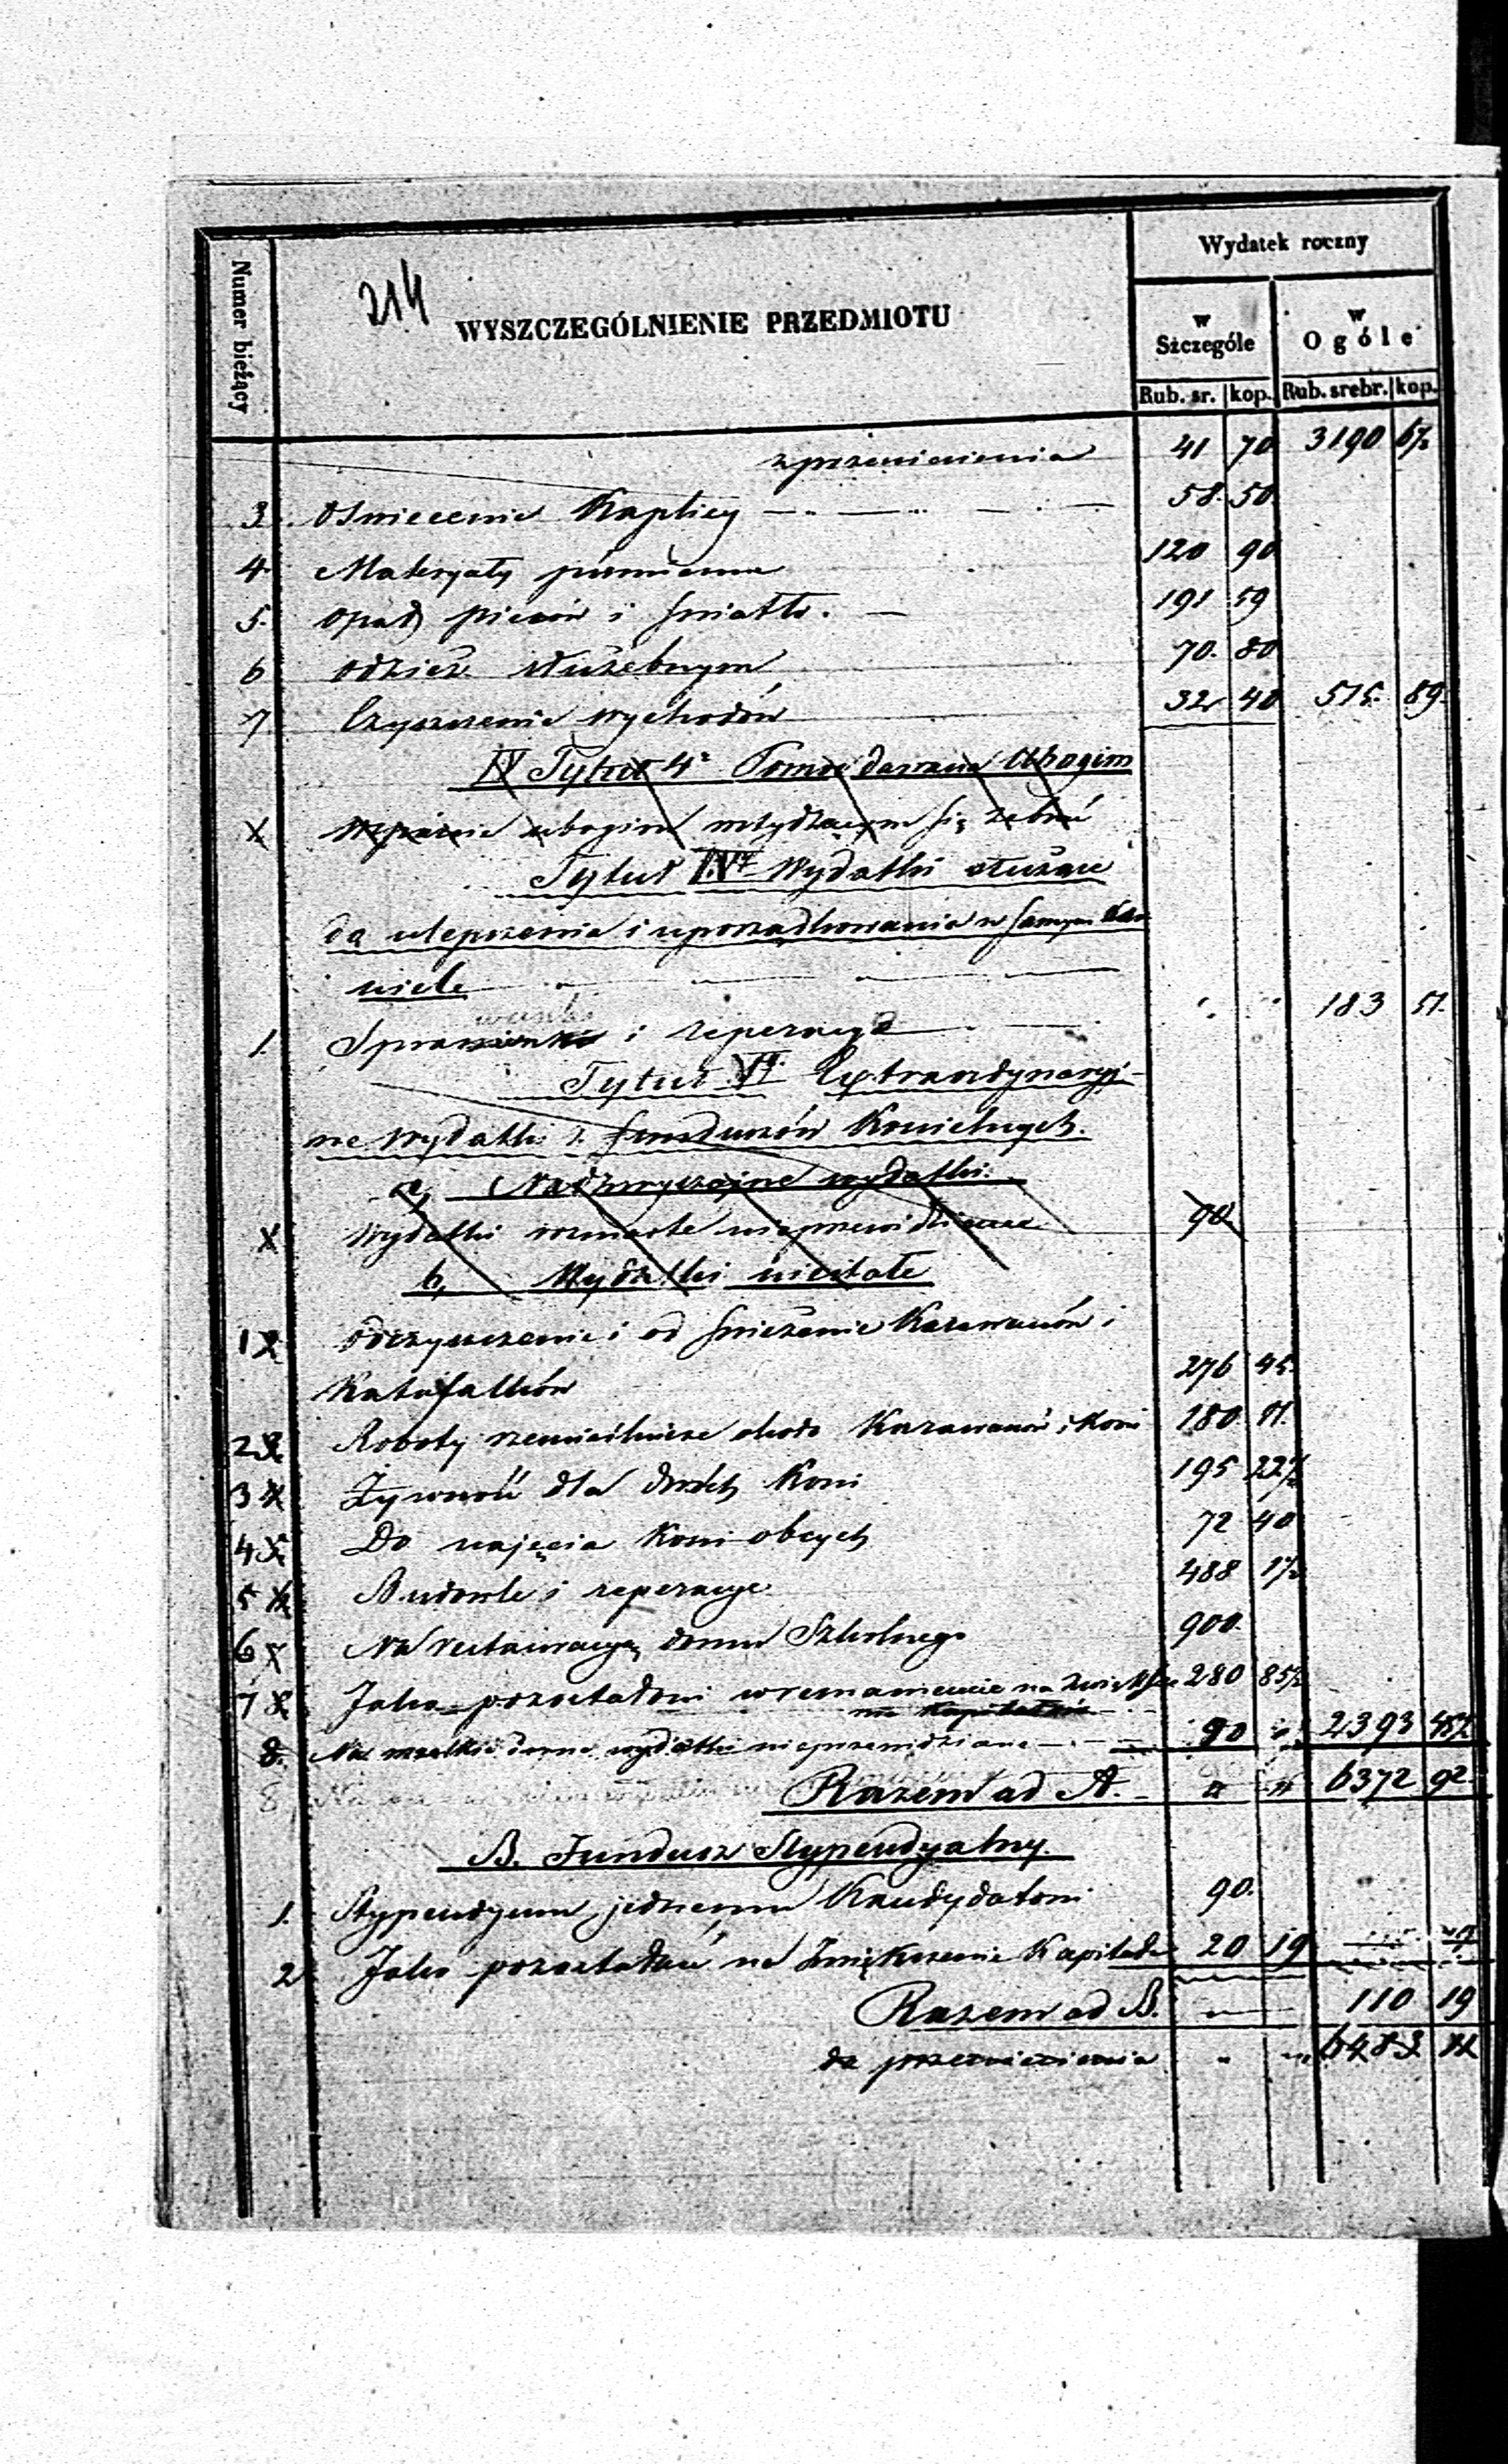 Numer bieżący
214
WYSZCZEGÓLNIENIE PRZEDMIOTU
Wydatek roczny
w Szczególe
w Ogóle
Rub. sr. kop. Rub. srebr. kop.
z przeniesienia 41 70 3190 6½
3. Oświecenie Kaplicy 58. 50
4. Materyały piśmienne 120 90
5. Opał pieców i światło. 191 59
6 Odzież służebnym 70. 80
7. Czyszczenie wychodów 32 40 515. 89.
IV Tytuł 4r Pomoc dawana Ubogim
ubogim wstydzącym się żebrać
Tytuł IVr Wydatki służące
do ulepszenia i uporządkowania w samym Koś
ciele
1. i reperacye 183 51.
Tytuł V Extraordynaryj-
ne wydatki z funduszów Kościelnych.
a, Nadzwyczajne wydatki.
Wydatki rozmaite nieprzewidziane 90
b, Wydatki niestałe
1 Odczyszczenie i odświeżenie Karawanów i
Katafalków 276 45.
2 Roboty rzemieślnicze około Karawanów i Koni 180 11.
3 Żywność dla dwóch Koni 195 22½
4 Do najęcia Koni obcych 72 40
5 Budowle i reperacye 488 1½
6 Na restauracyą domu Szkolnego 900.
7 Jako pozostałość w remanencie na zwiększe 280 85½
nie Kapitałów
8. Na wszelkie wydatki nieprzewidziane 90 2393 45½
Razem ad A. 6372 92.
B. Fundusz Stypendyalny.
1. Stypendyum jednemu Kandydatowi 90.
2 Jako pozostałość na zwiększenie Kapitału 20 19
Razem ad B. 110 19
do przeniesienia 6483 11